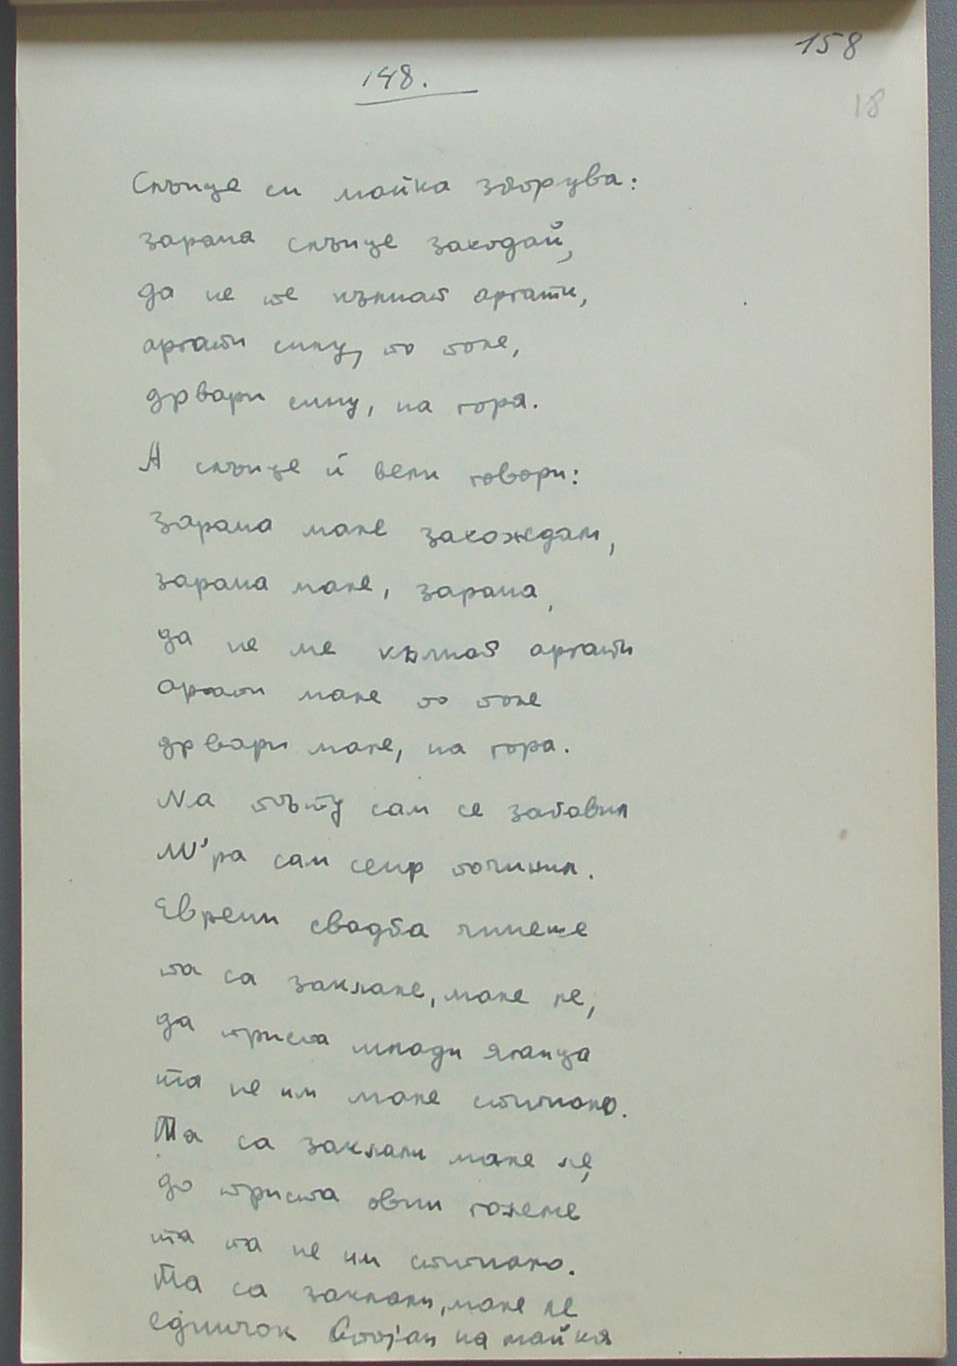 158
148.
18
Слънце си майка зборува:
зарана слънце заходай,
да не те кълнат аргати,
аргати сину, по поле,
дрвари сину, на гора.
А слънце ѝ вели говори:
зарана мале захождам,
зарана мале, зарана,
да не ме кълнат аргати
аргати мале по поле
дрвари мале, на гора.
На пътӯ сам се забавил
сам сеир починил.
Евреин свадба чинеше
та са заклале, мале ле,
да триста млади яганца
та не им мале стигнало.
Та са заклали мале ле,
до триста овни големе
та па не им стигнало.
Та са заклали, мале ле
едничок Стојан на майкя